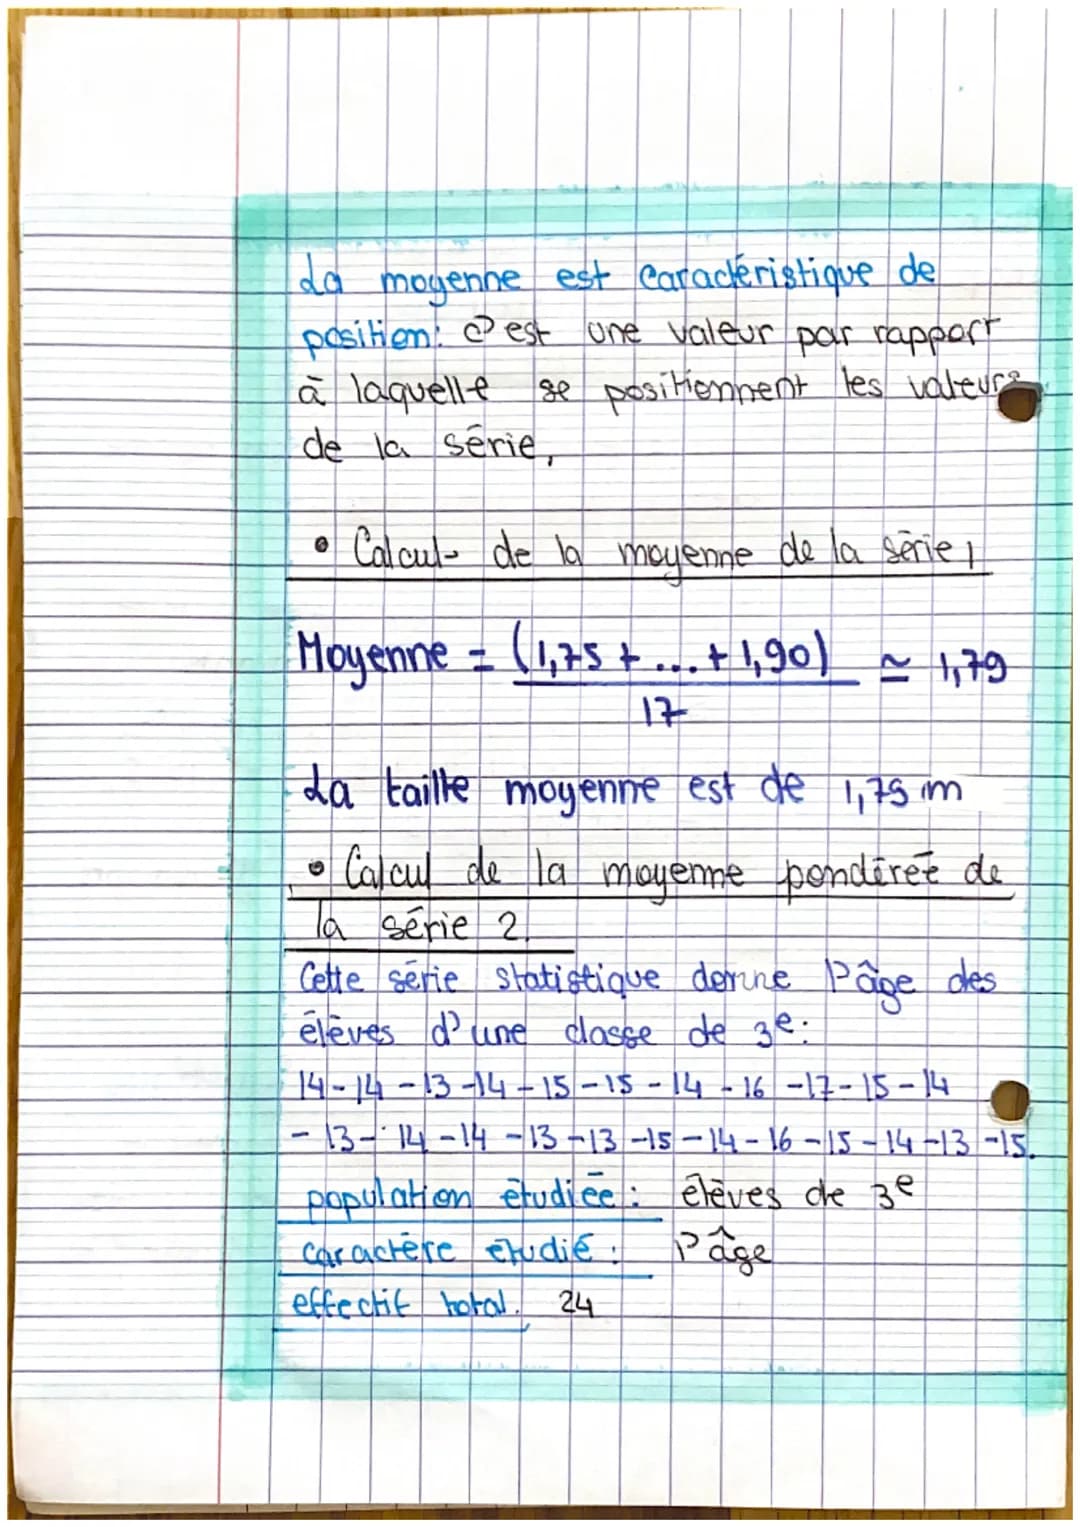 La moyenne est caractéristique de
position: c'est une valeur par rapport
à laquelle se positionnent les valeurs
de la série,
• Calcul de la moyenne de la série 1
Moyenne = (1,75 + ... + 1,90) / 17 ≃ 1,79
La taille moyenne est de 1,79 m
• Calcul de la moyenne pondérée de
la série 2.
Cette série statistique donne l'âge des
élèves d'une classe de 3e:
14 - 14 - 13 - 14 - 15 - 15 - 14 - 16 - 17 - 15 - 14
- 13 - 14 - 14 - 13 - 13 - 15 - 14 - 16 - 15 - 14 - 13 - 15.
population étudiée : élèves de 3e
caractère étudié : l'âge
effectif total. 24